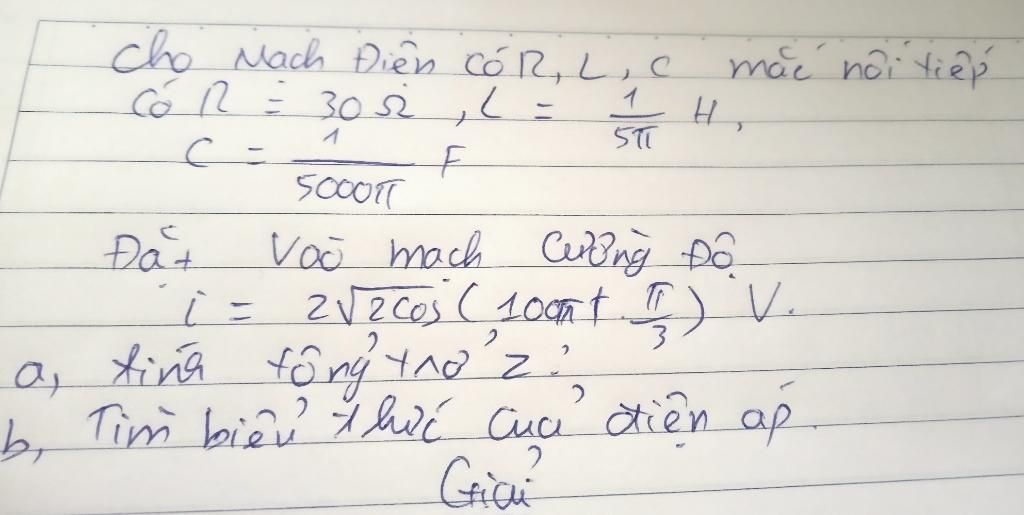 Cho Mạch Điện có R, L, C mắc nối tiếp
Có R = 30 Ω, L = 1/5π H,
C = 1/5000π F
Đặt Vào mạch Cường Độ
i = 2√2cos (100πt π/3) V.
a, tính tổng trở Z?
b, Tìm biểu thức của điện áp.
Giải